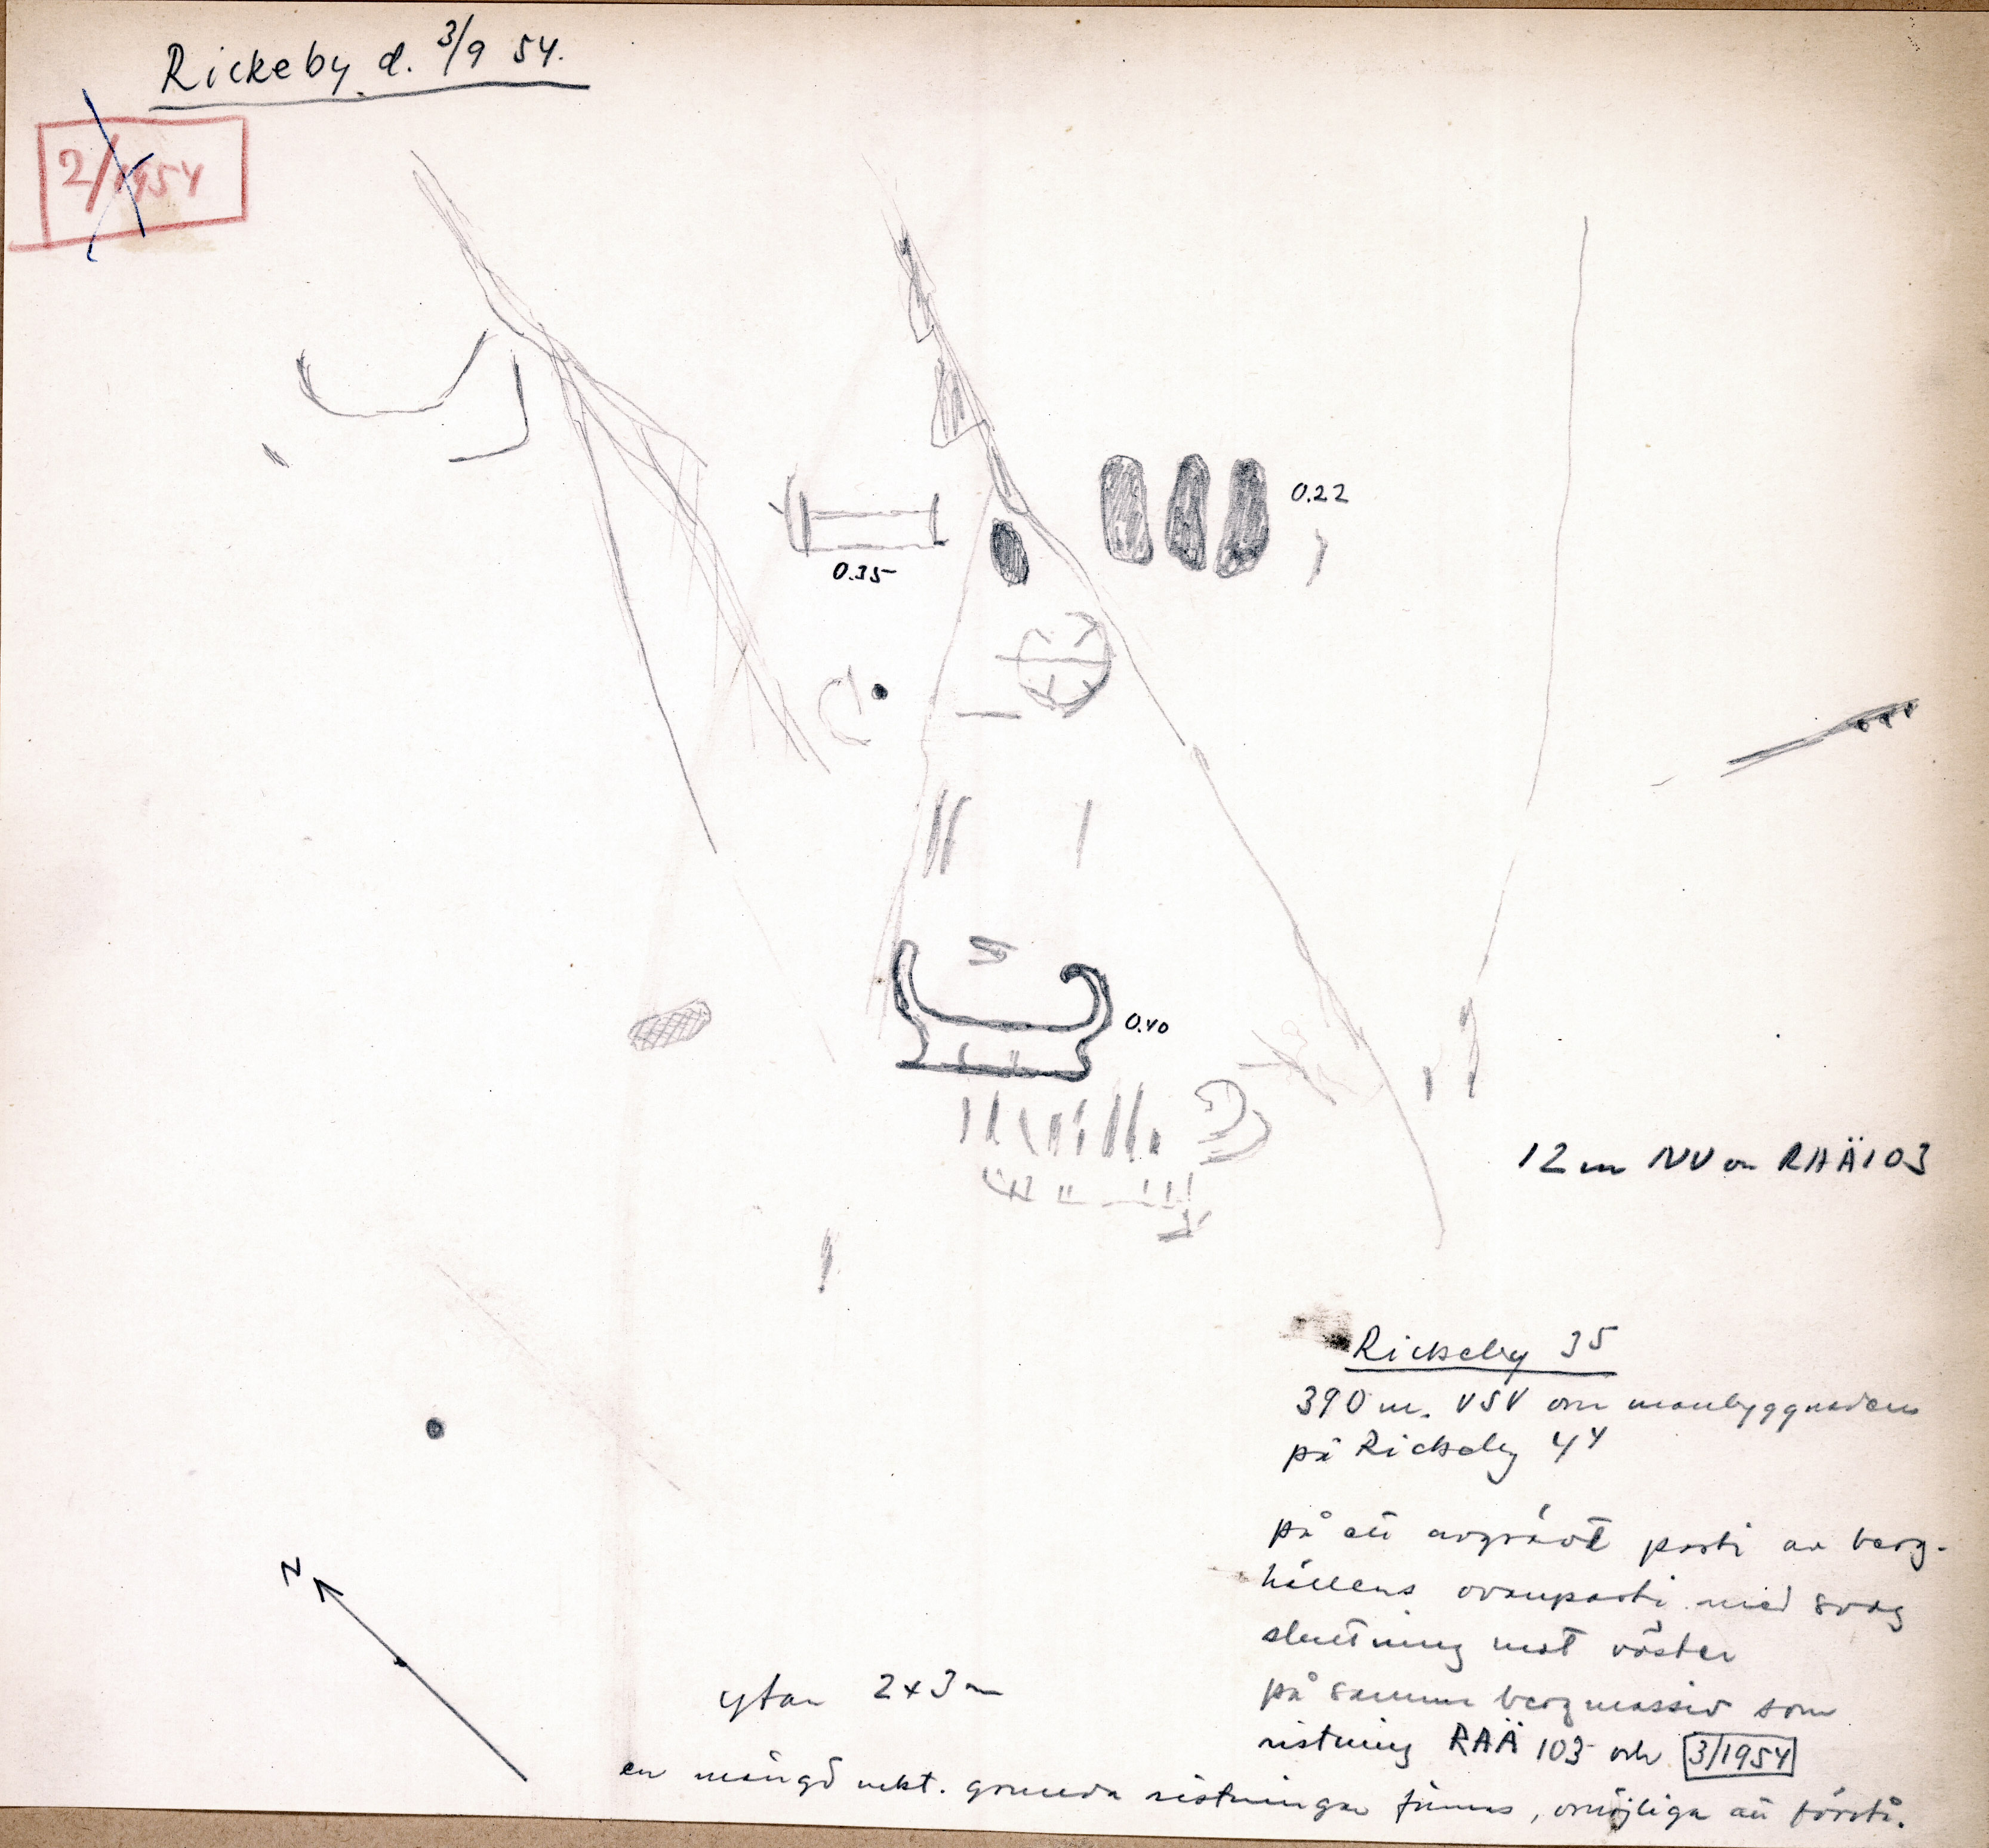 Rickeby d. 3/9 54.
2/1954
0.22
0.35
0.40
12 m NV om RAÄ 103
Rickeby 35
390 m. VSV om manbyggnaden
på Rickeby 44
på ett avgrävt parti av berg-
hällens ovanparti med svag
sluttning mot väster
på samma bergmassiv som
ristning RAÄ 103 och 3/1954
N
ytan 2x3 m
en mängd mkt. grunda ristningar finnes, omöjliga att förstå.